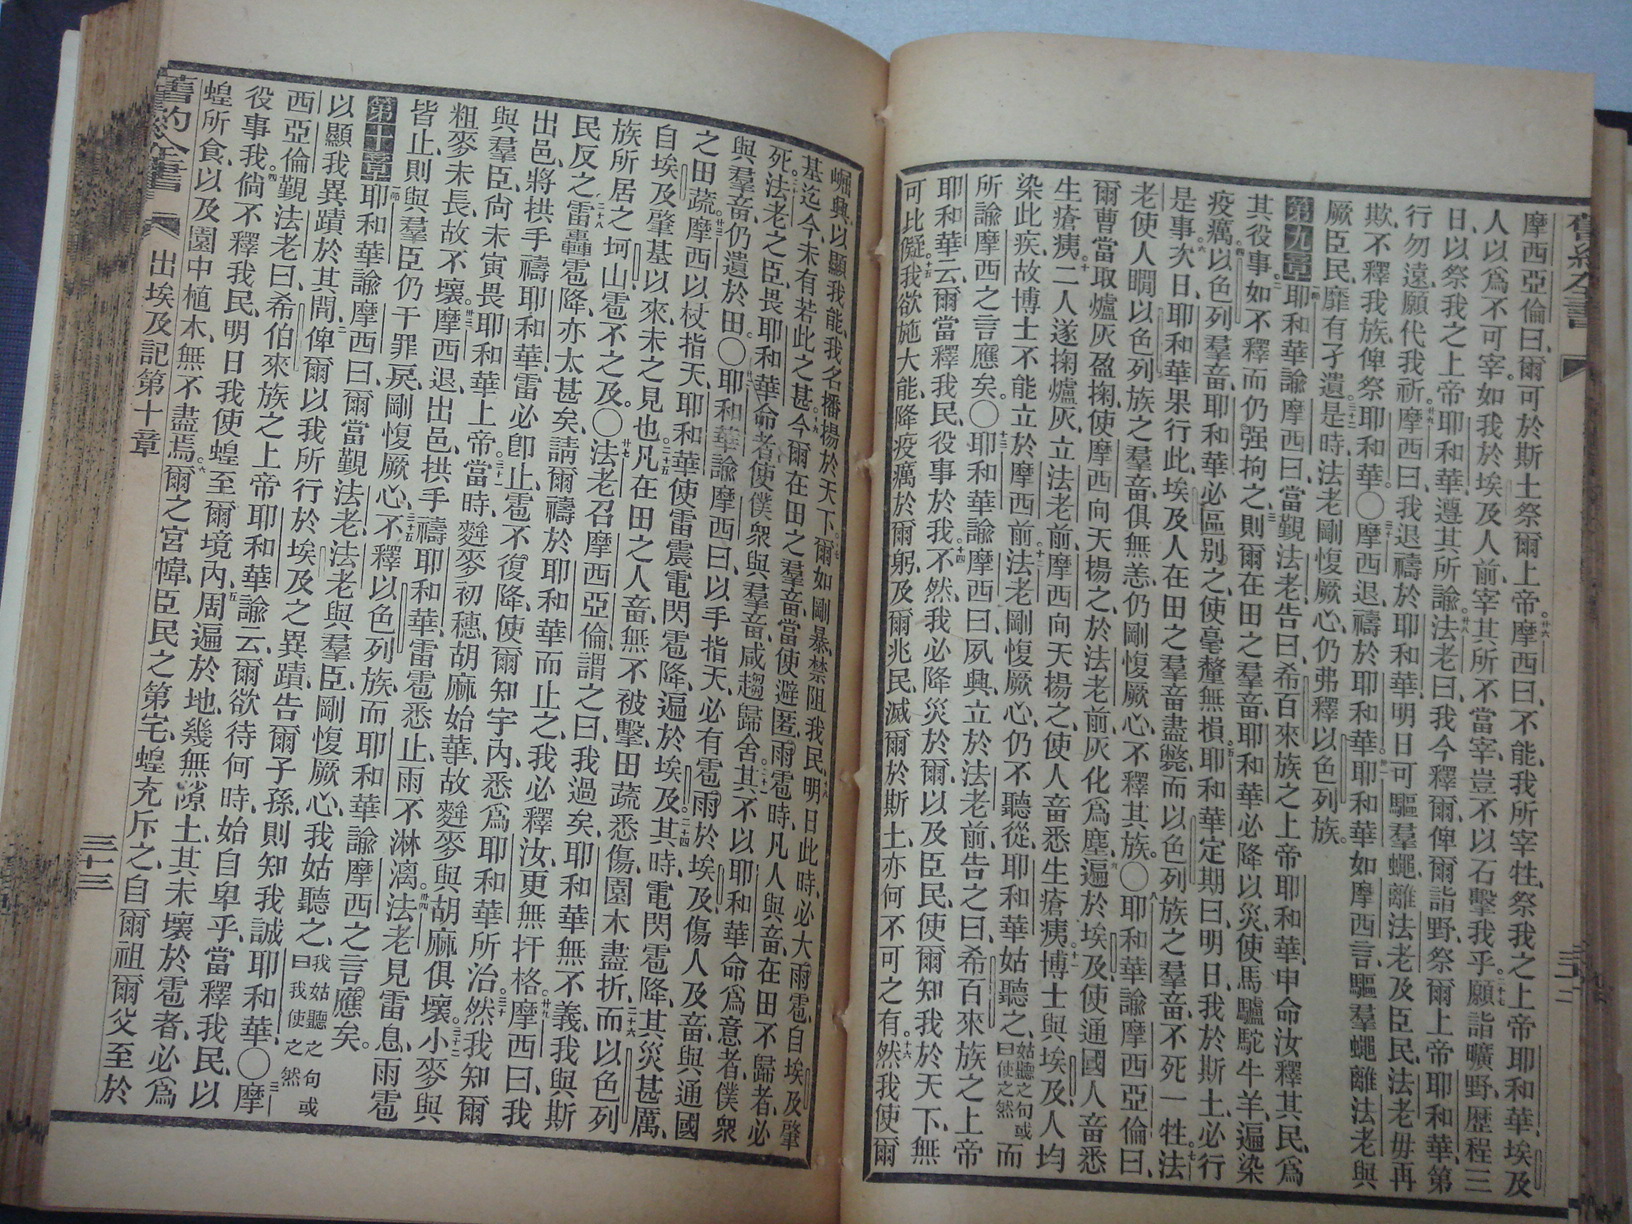 摩西亞倫曰、爾可於斯土祭爾上帝、廿六摩西曰、不能、我所宰牲、祭我之上帝耶和華、埃及
人以爲不可宰、如我於埃及人前、宰其所不當宰、豈不以石擊我乎、二十七願詣曠野、歷程三
日、以祭我之上帝耶和華、遵其所諭、廿八法老曰、我今釋爾、俾爾詣野、祭爾上帝耶和華、第
行勿遠、願代我祈、廿九摩西曰、我退禱於耶和華、明日可驅羣蠅、離法老及臣民、法老毋再
欺、不釋我族、俾祭耶和華、〇三十摩西退、禱於耶和華、卅一耶和華如摩西言、驅羣蠅離法老與
厥臣民、靡有孑遺、三十二是時法老剛愎厥心、仍弗釋以色列族。
第九章一節耶和華諭摩西曰、當覲法老告曰、希百來族之上帝耶和華、申命汝釋其民、爲
其役事、二如不釋而仍强拘之、三則爾在田之羣畜、耶和華必降以災、使馬驢駝牛羊、遍染
疫癘、四以色列羣畜、耶和華必區別之、使毫釐無損、五耶和華定期曰、明日、我於斯土、必行
是事、六次日、耶和華果行此、埃及人在田之羣畜盡斃、而以色列族之羣畜、不死一牲、七法
老使人瞯以色列族之羣畜、俱無恙、仍剛愎厥心、不釋其族。〇八耶和華諭摩西亞倫曰、
爾曹當取爐灰盈掬、使摩西向天揚之、於法老前、九灰化爲塵、遍於埃及、使通國人畜悉
生瘡痍、十二人遂掬爐灰、立法老前、摩西向天揚之、使人畜悉生瘡痍、十一博士與埃及人均
染此疾、故博士不能立於摩西前、十二法老剛愎厥心、仍不聽從、耶和華姑聽之、姑聽之句或曰使之然而
所諭摩西之言應矣。〇十三耶和華諭摩西曰、夙興、立於法老前、告之曰、希百來族之上帝
耶和華云、爾當釋我民、役事於我、十四不然、我必降災於爾、以及臣民、使爾知我於天下、無
可比儗、十五我欲施大能、降疫癘於爾躬、及爾兆民、滅爾於斯土、亦何不可之有、十六然我使爾
崛興、以顯我能、我名播揚於天下、十七爾如剛暴、禁阻我民、十八明日此時、必大雨雹、自埃及肇
基迄今、未有若此之甚、十九今爾在田之羣畜、當使避匿、雨雹時、凡人與畜、在田不歸者、必
死、二十法老之臣、畏耶和華命者、使僕衆與羣畜咸趨歸舍、二十一其不以耶和華命爲意者、僕衆
與羣畜仍遺於田。〇廿二耶和華諭摩西曰、以手指天、必有雹、雨於埃及、傷人及畜、與通國
之田蔬、廿三摩西以杖指天、耶和華使雷震電閃、雹降遍於埃及、二十四其時電閃雹降、其災甚厲、
自埃及肇基以來、未之見也、二十五凡在田之人畜、無不被擊、田蔬悉傷、園木盡折、二十六而以色列
族所居之坷山、雹不之及。〇廿七法老召摩西亞倫、謂之曰、我過矣、耶和華無不義、我與斯
民反之、二十八雷轟雹降、亦太甚矣、請爾禱於耶和華而止之、我必釋汝、更無扞格、廿九摩西曰、我
出邑、將拱手禱耶和華、雷必卽止、雹不復降、使爾知宇內悉爲耶和華所治、三十然我知爾
與羣臣、尙未寅畏耶和華上帝、三十一當時、麰麥初穗、胡麻始華、故麰麥與胡麻俱壞、三十二小麥與
粗麥未長、故不壞、卅三摩西退、出邑、拱手禱耶和華、雷雹悉止、雨不淋漓、卅四法老見雷息、雨雹
皆止、則與羣臣仍干罪戾、剛愎厥心、三十五不釋以色列族、而耶和華諭摩西之言應矣。
第十章一節耶和華諭摩西曰、爾當覲法老、法老與羣臣剛愎厥心、我姑聽之、我姑聽之句或曰我使之然
以顯我異蹟於其間、二俾爾以我所行於埃及之異蹟、告爾子孫、則知我誠耶和華。〇三摩
西亞倫覲法老曰、希伯來族之上帝耶和華諭云、爾欲待何時、始自卑乎、當釋我民、以
役事我、四倘不釋我民、明日我使蝗至爾境內、五周遍於地、幾無隙土、其未壞於雹者、必爲
蝗所食、以及園中植木、無不盡焉、六爾之宮幃、臣民之第宅、蝗充斥之、自爾祖爾父至於
舊約全書 出埃及記第十章 三十三